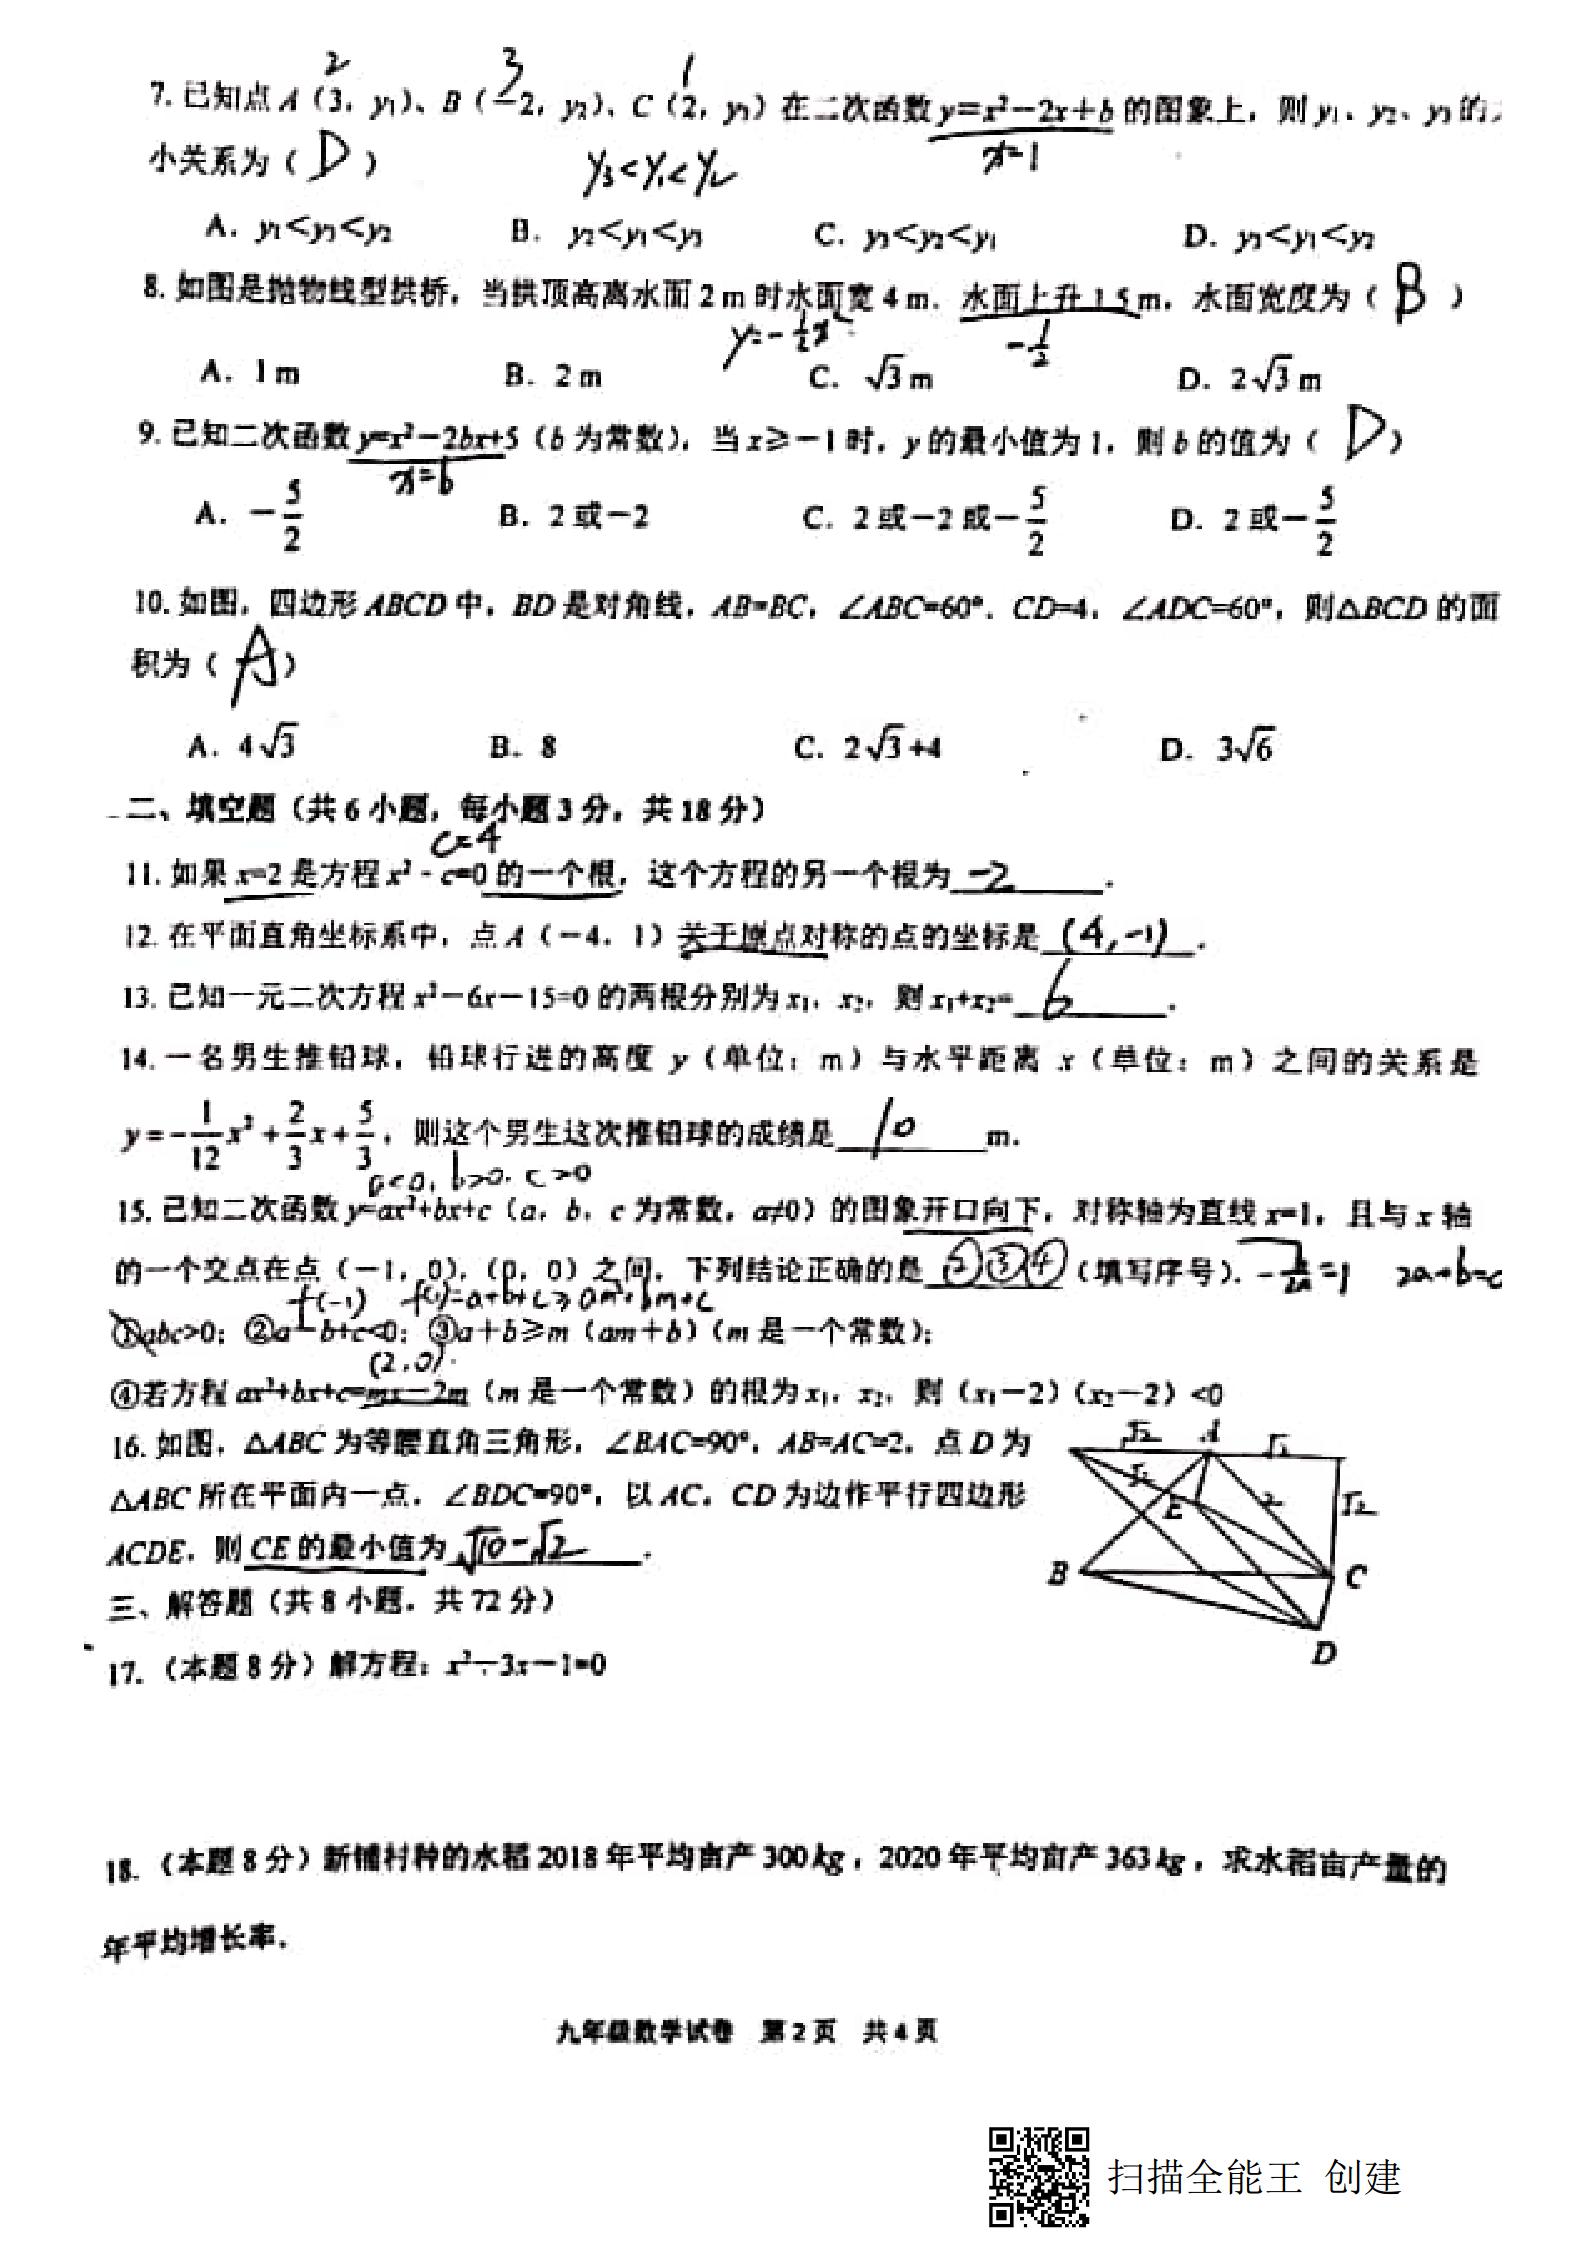 2 3 1
7. 已知点 A（3，y₁）、B（－2，y₂）、C（2，y₃）在二次函数 y=x²－2x+b 的图象上，则 y₁、y₂、y₃ 的
x=1
小关系为（ D ） y₃<y₁<y₂
A. y₁＜y₃＜y₂ B. y₂＜y₁＜y₃ C. y₃＜y₂＜y₁ D. y₃＜y₁＜y₂
8. 如图是抛物线型拱桥，当拱顶高离水面 2 m 时水面宽 4 m．水面上升 1.5 m，水面宽度为（ B ）
y=-½x² -½
A. 1 m B. 2 m C. √3 m D. 2√3 m
9. 已知二次函数 y=x²－2bx+5（b 为常数），当 x≥－1 时，y 的最小值为 1，则 b 的值为（ D ）
x=b
A. －5/2 B. 2 或－2 C. 2 或－2 或－5/2 D. 2 或－5/2
10. 如图，四边形 ABCD 中，BD 是对角线，AB=BC，∠ABC=60°．CD=4，∠ADC=60°，则△BCD 的面
积为（ A ）
A. 4√3 B. 8 C. 2√3+4 D. 3√6
二、填空题（共 6 小题，每小题 3 分，共 18 分）
c=4
11. 如果 x=2 是方程 x² - c=0 的一个根，这个方程的另一个根为 -2 ．
12. 在平面直角坐标系中，点 A（－4．1）关于原点对称的点的坐标是 (4,-1) ．
13. 已知一元二次方程 x²－6x－15=0 的两根分别为 x₁，x₂，则 x₁+x₂= 6 ．
14. 一名男生推铅球，铅球行进的高度 y（单位：m）与水平距离 x（单位：m）之间的关系是
y=-1/12 x²+2/3 x+5/3，则这个男生这次推铅球的成绩是 10 m．
a<0, b>0. c>0
15. 已知二次函数 y=ax²+bx+c（a，b，c 为常数，a≠0）的图象开口向下，对称轴为直线 x=1，且与 x 轴
的一个交点在点（－1，0），（0，0）之间，下列结论正确的是 ②③④ （填写序号）． -b/2a=1 2a+b=0
f(-1) f(1)=a+b+c≥am²+bm+c
①abc>0；②a－b+c<0；③a＋b≥m（am＋b）（m 是一个常数）；
(2,0)
④若方程 ax²+bx+c=mx－2m（m 是一个常数）的根为 x₁，x₂，则（x₁－2）（x₂－2）<0
16. 如图，△ABC 为等腰直角三角形，∠BAC=90°，AB=AC=2，点 D 为
△ABC 所在平面内一点．∠BDC=90°，以 AC，CD 为边作平行四边形
ACDE，则 CE 的最小值为 √10-√2 ．
√2 A √2
√2 E 2 √2
B C
D
三、解答题（共 8 小题．共 72 分）
17.（本题 8 分）解方程：x²－3x－1=0
18.（本题 8 分）新铺村种的水稻 2018 年平均亩产 300 kg，2020 年平均亩产 363 kg，求水稻亩产量的
年平均增长率．
九年级数学试卷 第 2 页 共 4 页
扫描全能王 创建